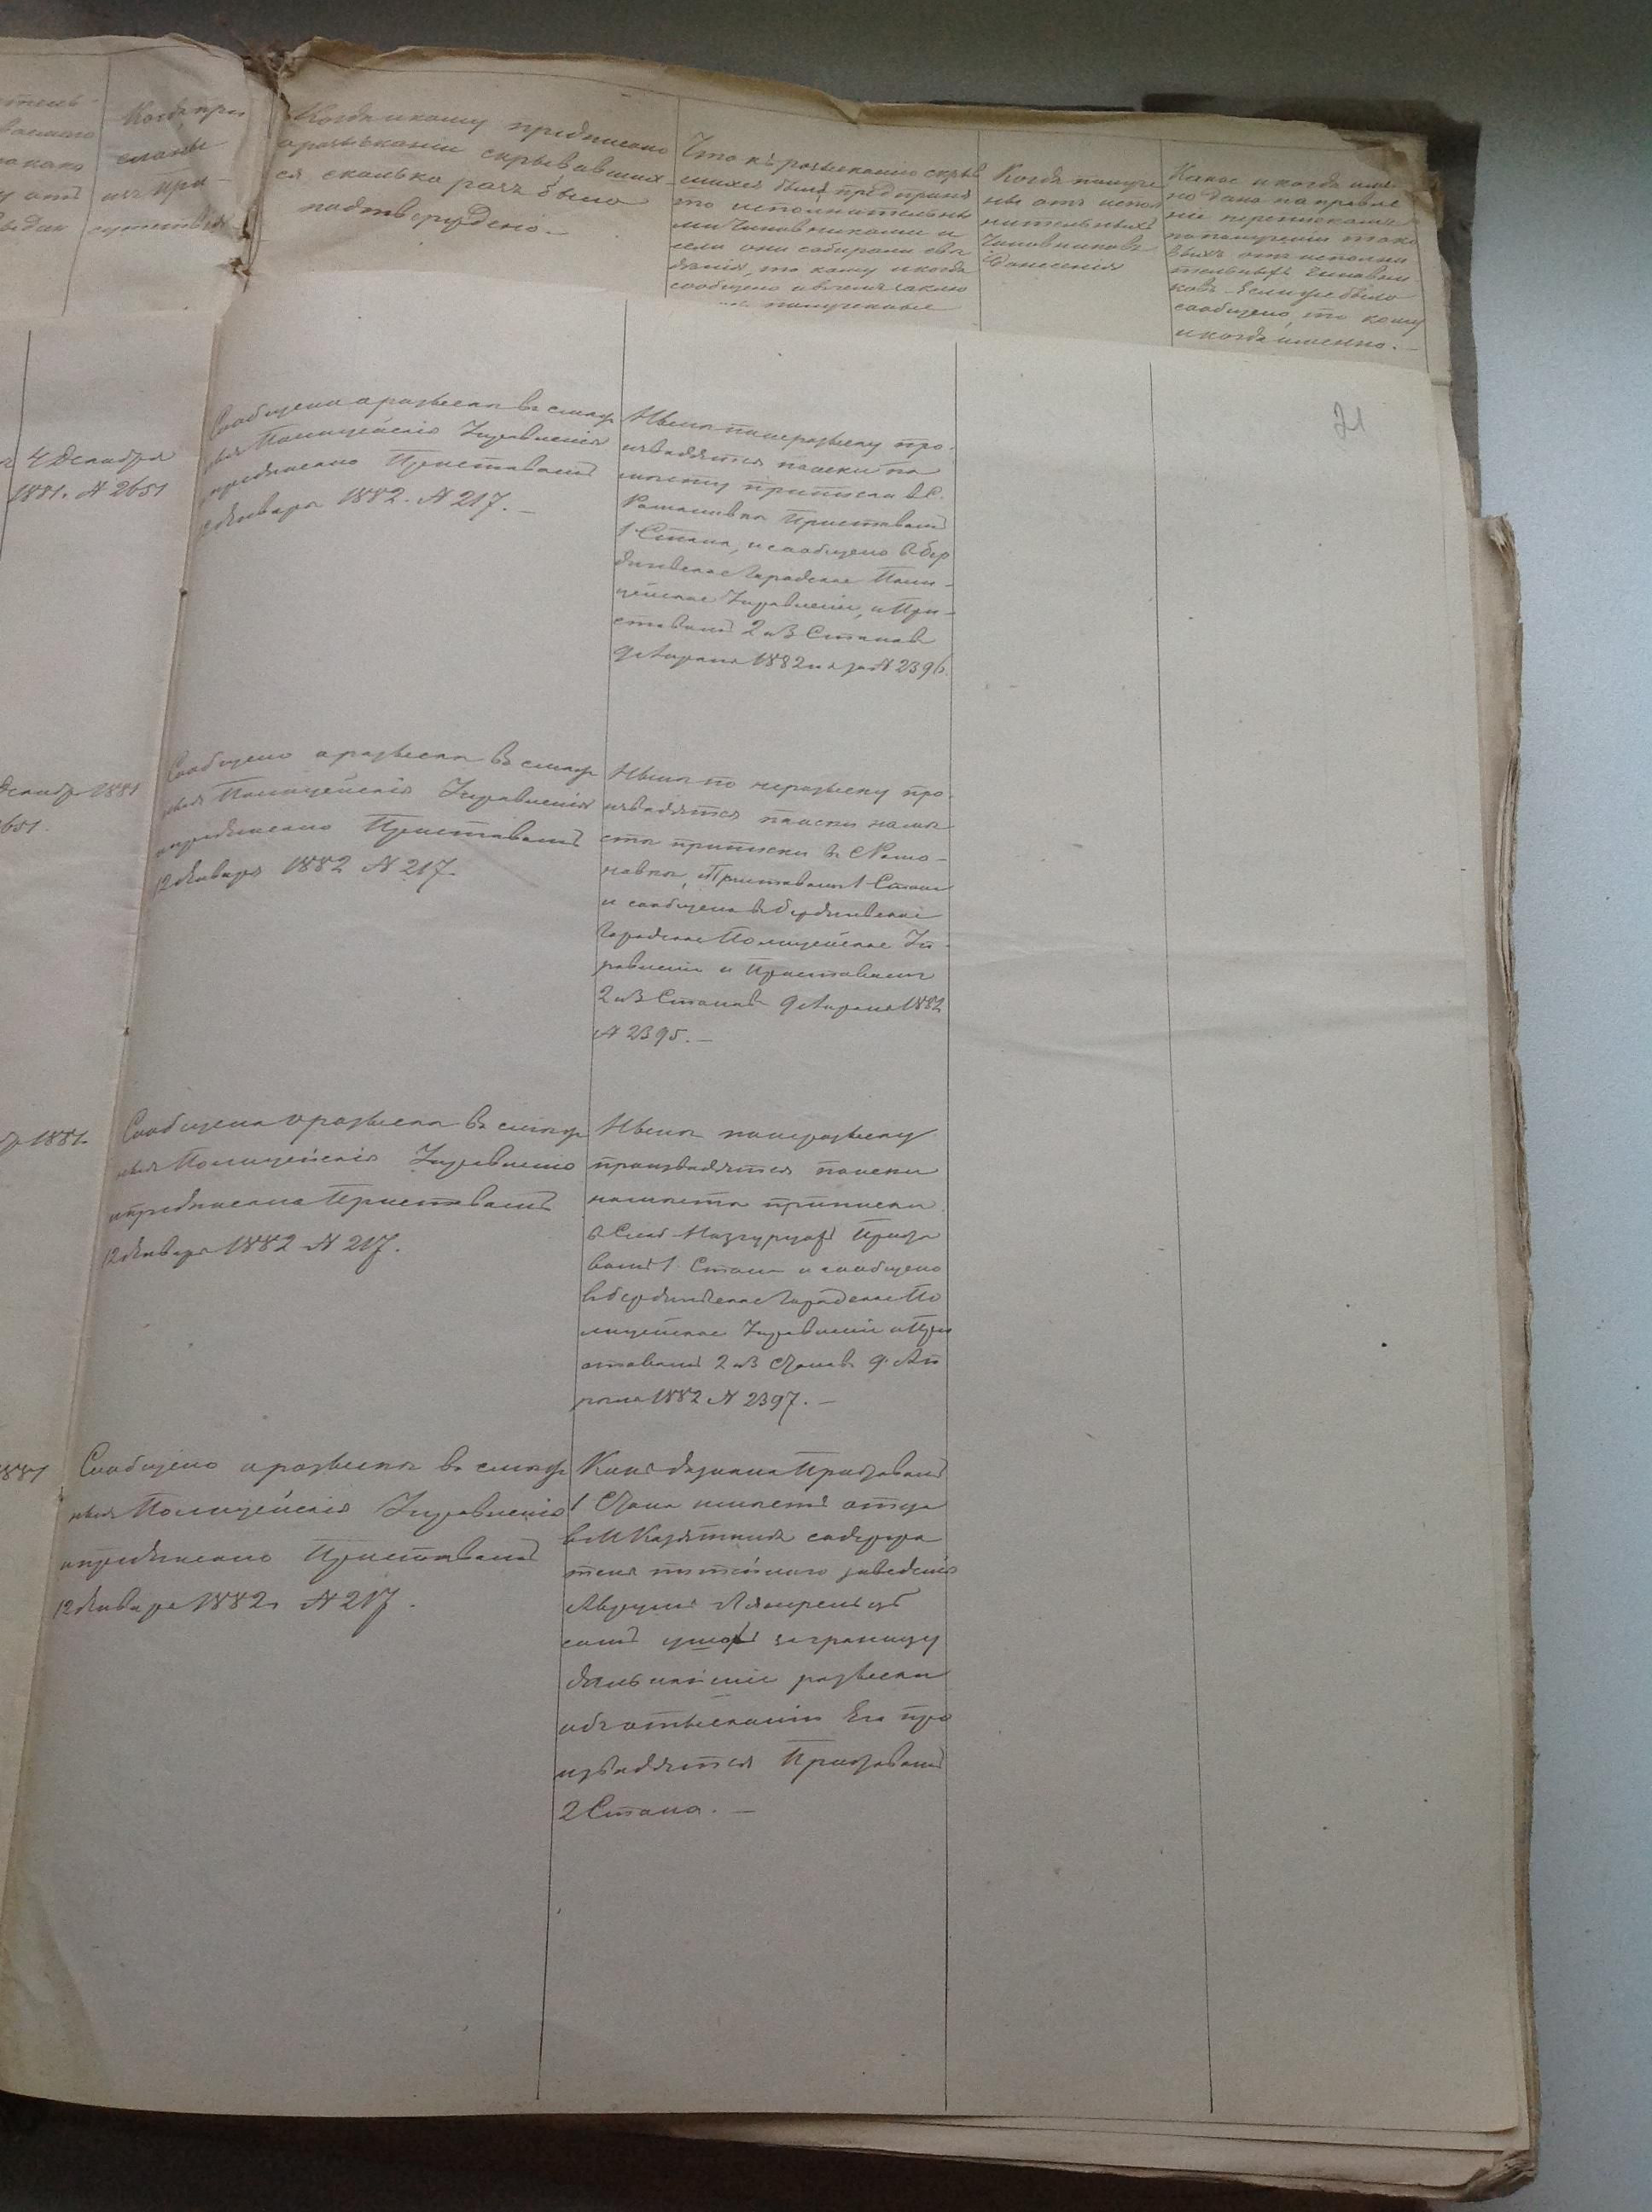 Когда при
сланы
изъ При
сутствія
Когда и кому предписано
о розысканіи скрывавших
ся сколько разъ было
подтверждено. –
Что къ розысканію скрыв
шихся было предприня
то исполнительны
ми Чиновниками и
если они собирали свѣ
дѣнія, то кому и когда
сообщено и время
полученные
Когда получе
ны отъ испол
нительныхъ
Чиновниковъ
Донесенія
Какое и когда име
но дано направле
ніе перепискамъ
по полученіи тако
выхъ отъ исполни
тельныхъ Чиновни
ковъ. Если же было
сообщено, то кому
и когда именно. –
21
4 Декабря
1881. № 2651
Сообщено о розыскѣ въ смеж
ныя Полицейскія Управленія
и предписано Приставамъ
Января 1882. № 217. –
Нынѣ по розыску про-
изводятся поиски по
мѣсту приписки въ С.
Романовкѣ Приставомъ
1 Стана, и сообщено в Бер
дичевское Городское Поли-
цейское Управленіе, и При-
ставамъ 2 и 3 Становъ
9 Апрѣля 1882 за № 2396.
Декабр 1881
2651.
Сообщено о розыскѣ въ смеж
ныя Полицейскія Управленія
и предписано Приставамъ
12 Января 1882 № 217. –
Нынѣ по розыску про-
изводятся поиски на мѣ
стѣ приписки въ С Рома-
новкѣ, Приставомъ 1 Стана
и сообщено в Бердичевское
Городское Полицейское Уп-
равленіе и Приставамъ
2 и 3 Становъ 9 Апрѣля 1882
№ 2395. –
1881.
Сообщено о розыскѣ въ смеж
ныя Полицейскія Управленія
и предписано Приставамъ
12 Января 1882 № 217.
Нынѣ по розыску
производятся поиски
на мѣстѣ приписки
Приста
вомъ 1 Стана и сообщено
в Бердичевское Городское По
лицейское Управленіе и При
ставамъ 2 и 3 Станов 9 Ап
рѣля 1882 № 2397. –
1881
Сообщено о розыскѣ въ смеж
ныя Полицейскія Управленія
и предписано Приставамъ
12 Января 1882 № 217.
Какъ дознано Приставомъ
1 Стана имѣетъ отца
в М содержа
теля питейного заведенія
самъ ушолъ заграницу
дальнѣйшіе розыски
объ отысканіи Его про
изводятся Приставомъ
2 Стана. –